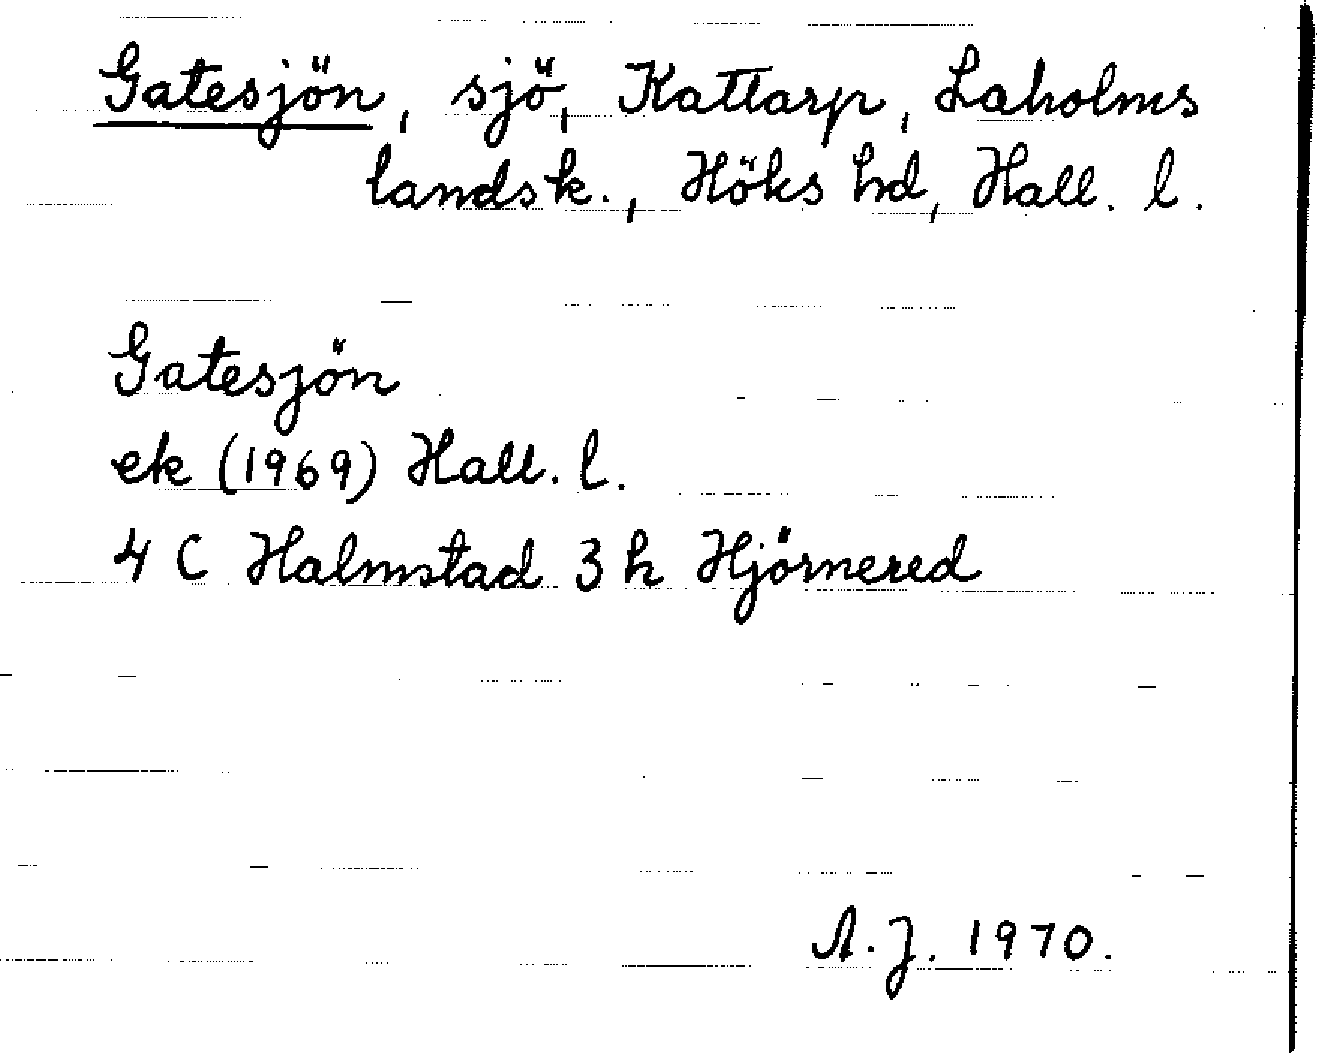 Gatesjön, sjö, Kattarp, Laholms
landsk., Höks hd, Hall. l.
Gatesjön
ek (1969) Hall. l.
4 C Halmstad 3 h Hjörnered
A.J. 1970.